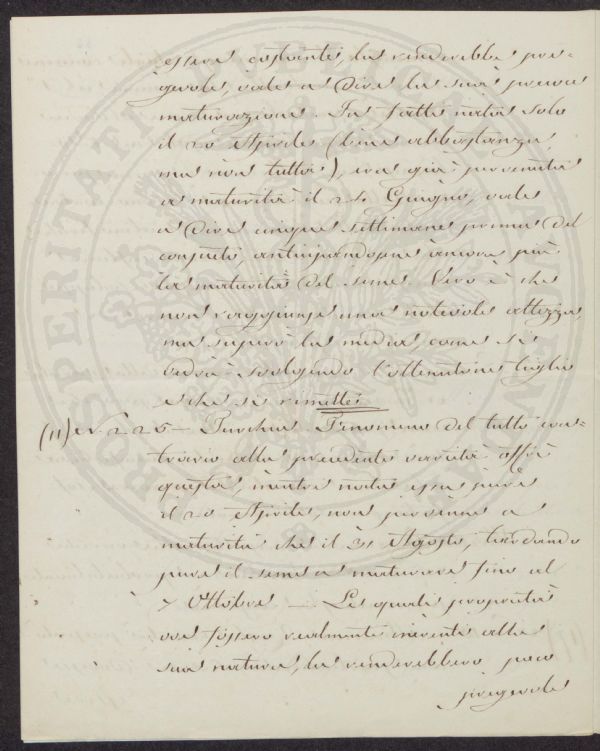 essere costante, la renderebbe pre-
gevole, vale a dire la sua precoce
maturazione. In fatti nata solo
il 20 Aprile (bene abbastanza,
ma non tutta), era già pervenuta
a maturità il 24 Giugno, vale
a dire cinque settimane prima del
consueto, anticipandone ancora più
la maturità del seme. Vero è che
non raggiunse una notevole altezza,
ma superò la media, come si
vedrà svolgendo l'ottenutone taglio
che si rimette.
(11) N. 225 — Turchia. Fenomeno del tutto con-
trario alla precedente varietà offrì
questa, mentre nata essa pure
il 20 Aprile, non pervenne a
maturità che il 31 Agosto, tardando
pure il seme a maturare fino al
7 Ottobre — Le quali proprietà
ove fossero realmente inerenti alla
sua natura, la renderebbero poco
pregevole